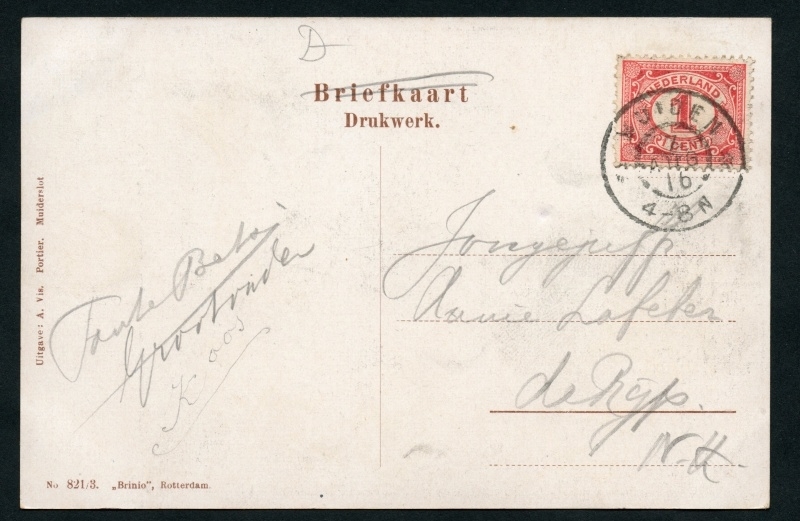 D
Briefkaart
Drukwerk.
NEDERLAND
1
CENT
MUIDEN
AUG
16
4-8N
Uitgave: A. Vis. Portier. Muiderslot
Tante Betsj
Grootvader
Koos
Jongejuff
Annie Lofelen
de Rijp.
N.H.
No 821/3. „Brinio", Rotterdam.